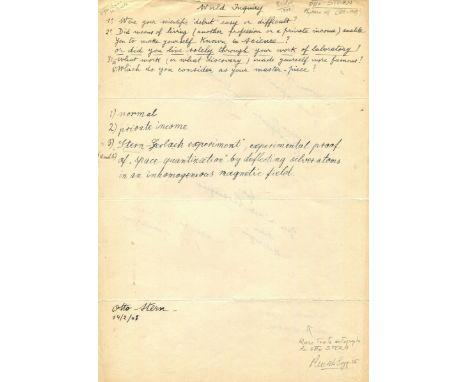 World Inquiry
OTTO STERN
1) Were your scientific debut easy or difficult?
2) Did means of living (another profession or a private income) enable
You to make yourself known in science..?
or did you live solely through your work of laboratory?
3) What work (or what discovery) made yourself more famous?
Which do you consider as your master-piece?
1) normal
2) private income
3) "Stern-Gerlach experiment", experimental proof
of "space quantization" by deflecting silver atoms
in an inhomogeneous magnetic field.
Otto Stern
OTTO STERN